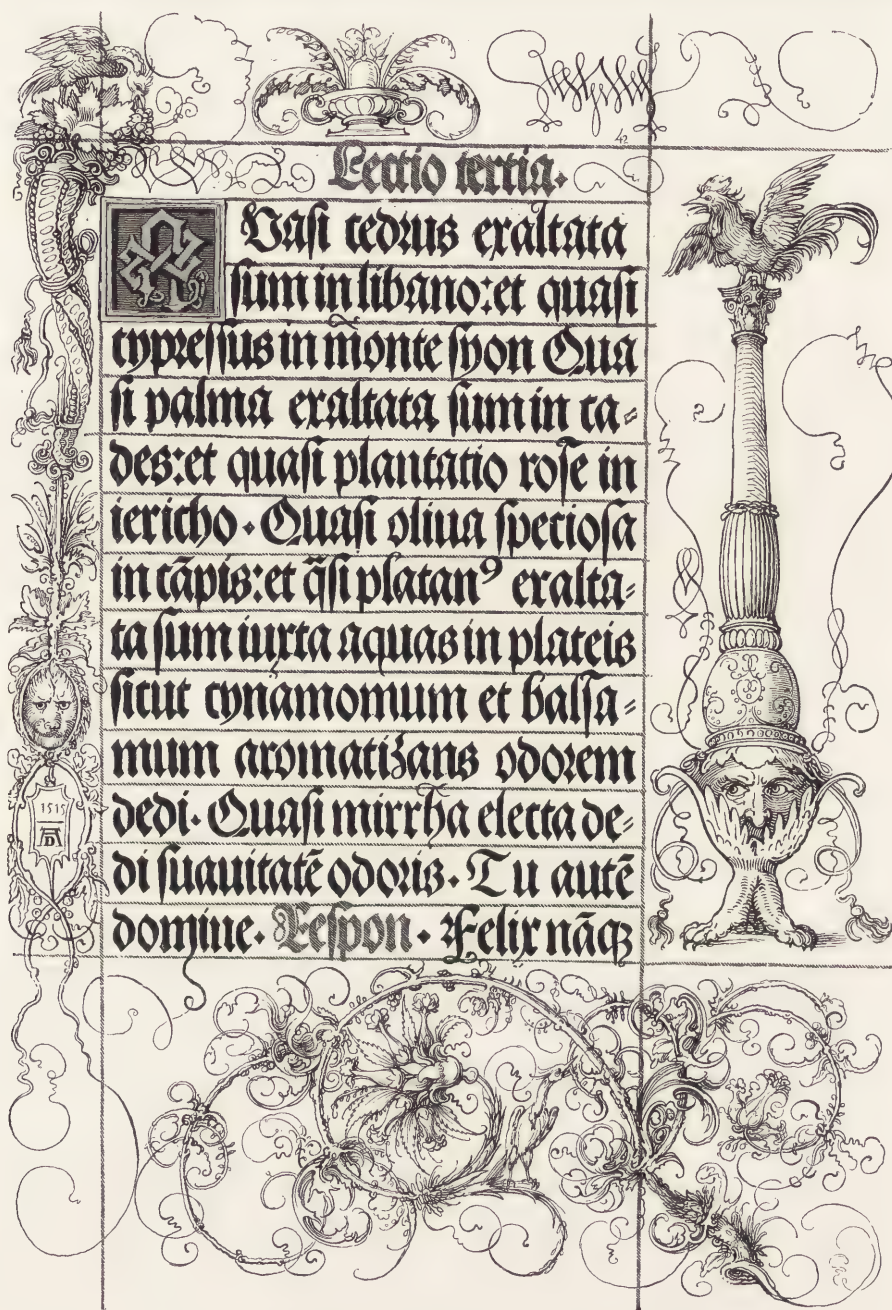 42
Lectio tertia.
QVasi cedrus exaltata
sum in libano: et quasi
cypressus in monte syon Qua
si palma exaltata sum in ca-
des: et quasi plantatio rose in
iericho. Quasi oliua speciosa
in cāpis: et q̄si platanꝰ exalta-
ta sum iuxta aquas in plateis
sicut cynamomum et balsa-
mum aromatizans odorem
dedi. Quasi mirrha electa de-
di suauitatē odoris. Tu autē
domine. Respon. Felix nāqꝫ
1515
AD